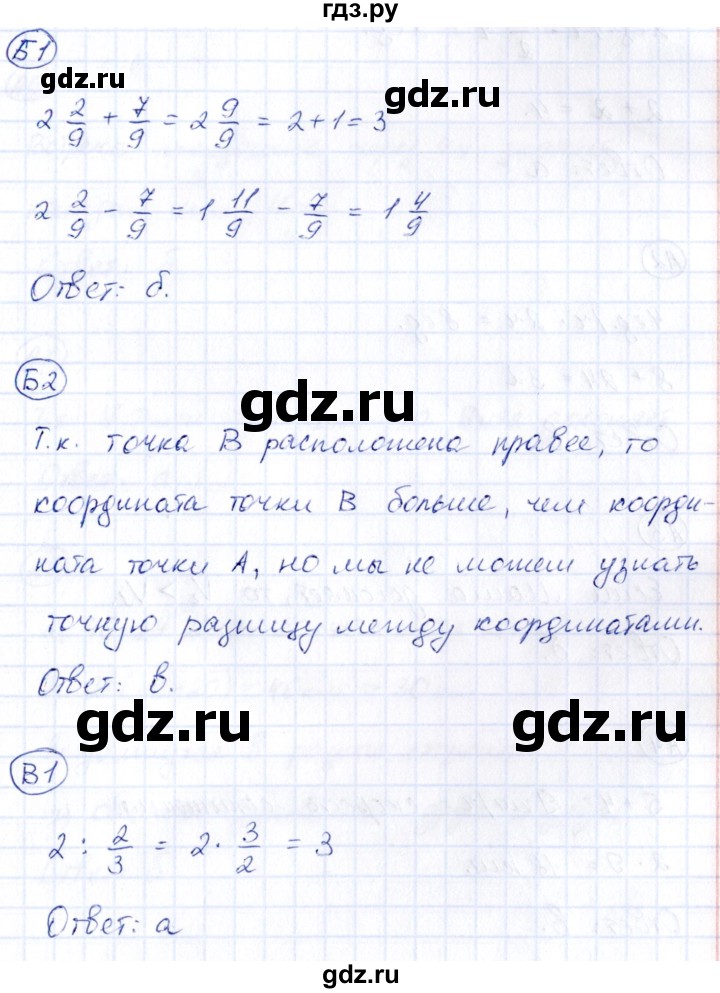 гдз.ру
Б1
gdz.ru
gdz.ru
2 2/9 + 7/9 = 2 9/9 = 2+1 = 3
2 2/9 - 7/9 = 1 11/9 - 7/9 = 1 4/9
Ответ: б.
Б2
gdz.ru
Т.к. точка В расположена правее, то
координата точки В больше, чем коорди-
ната точки А, но мы не можем узнать
точную разницу между координатами.
Ответ: в.
gdz.ru
gdz.ru
В1
2 : 2/3 = 2 · 3/2 = 3
gdz.ru
Ответ: а
gdz.ru